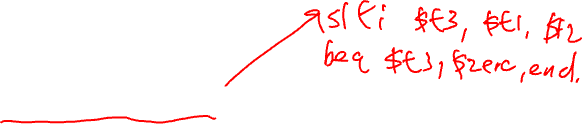 slti $t3, $t1, $t2
beq $t3, $zero, end.